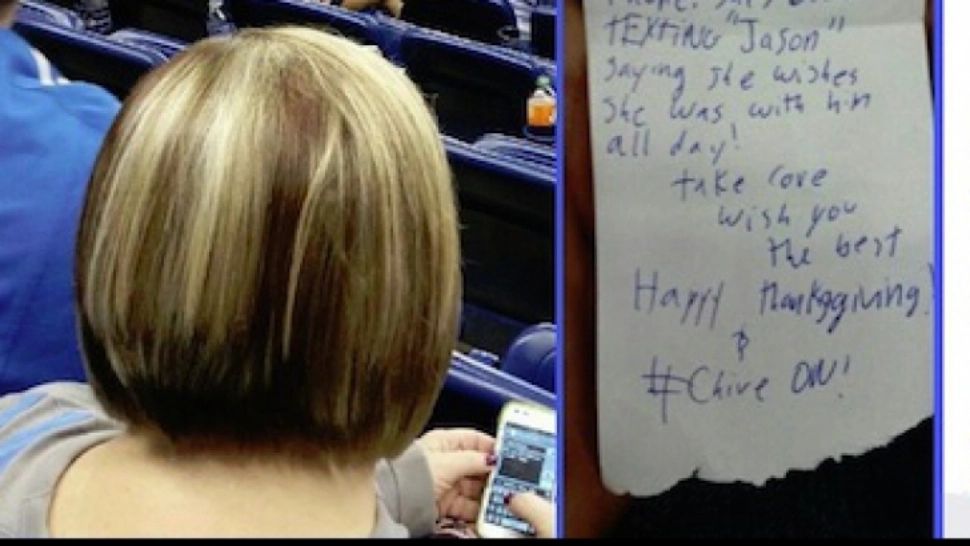 TEXTING "Jason"
Saying she wishes
She was with him
all day!
take care
wish you
the best
Happy thanksgiving!
&
#Chive ON!